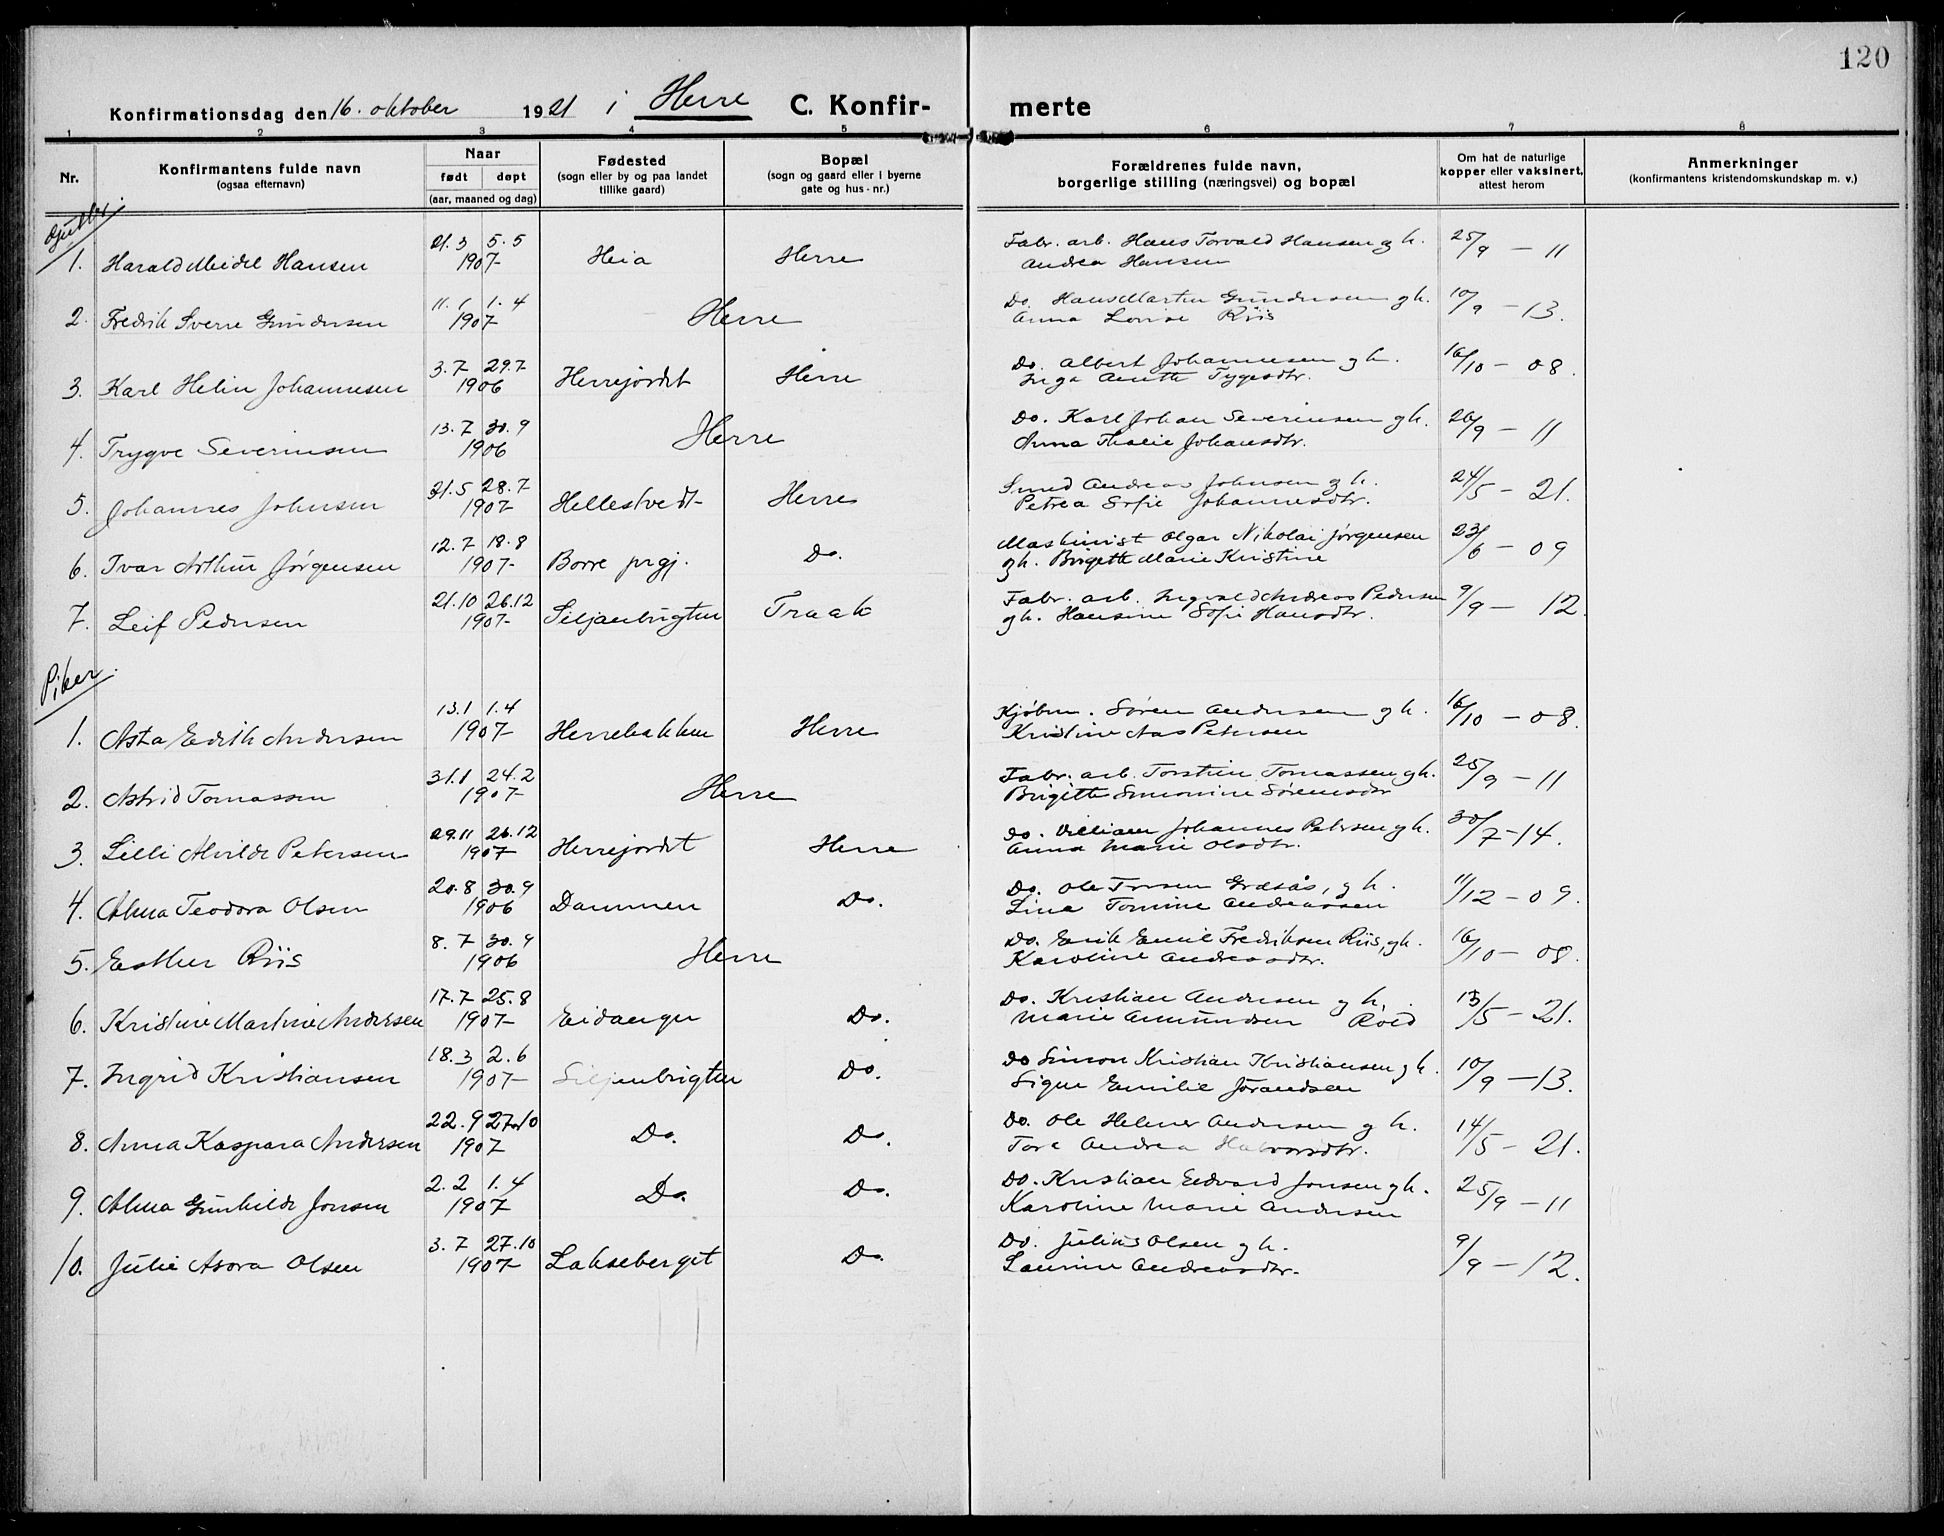 120
Konfirmationsdag den 16. oktober 1921 i Herre C. Konfir- merte
1 2 3 4 5 6 7 8
Nr. Konfirmantens fulde navn (ogsaa efternavn) Naar født døpt (aar, maaned og dag) Fødested (sogn eller by og paa landet tillike gaard) Bopæl (sogn og gaard eller i byerne gate og hus-nr.) Forældrenes fulde navn, borgerlige stilling (næringsvei) og bopæl Om hat de naturlige kopper eller vaksinert, attest herom Anmerkninger (konfirmantens kristendomskundskap m. v.)
21.3 5.5 Fabr. arb. Hans Torvald Hansen og h. 25/9 - 11
1. Harald Meidel Hansen 1907 Heia Herre Andrea Hansen
11.1 1.4 Do. Hans Martin Gundersen og h. 10/9 - 13.
2. Fredrik Sverre Gundersen 1907 Herre Anna Lovise Riis
3.7 29.7 Do. Albert Johannesen og h. 16/10 - 08.
3. Karl Helin Johannesen 1906 Herrejordet Herre Inga Anette Tygesdtr.
13.7 30.9 Do. Karl Johan Severinsen og h. 26/9 - 11
4. Trygve Severinsen 1906 Herre Anna Thalie Johansdtr.
31.5 28.7 Smed Andreas Johnsen og h. 24/5 - 21.
5. Johannes Johnsen 1907 Hellestvedt Herre Petrea Sofie Johannesdtr.
12.7 18.8 Maskinist Olgar Nikolai Jørgensen 23/6 - 09
6. Ivar Arthur Jørgensen 1907 Borre prgj. Do. og h. Birgitte Marie Kristine
21.10 26.12 Fabr. arb. Ingvald Andreas Pedersen 9/9 - 12.
7. Leif Pedersen 1907 Siljanbrigten Traak og h. Hansine Sofie Hansdtr.
Piker.
13.1 1.4 Kjøbm. Søren Andersen og h. 16/10 - 08.
1. Asta Edith Andersen 1907 Herrebakken Herre Kristine Aas Petersen
31.1 24.2 Fabr. arb. Torstein Tomassen og h. 25/9 - 11
2. Astrid Tomassen 1907 Herre Birgitte Simonine Sørensdtr
29.11 26.12 Do. William Johannes Petersen og h. 30/7 - 14.
3. Lilli Alvilde Petersen 1907 Herrejordet Herre Anna Marie Olsdtr.
20.8 30.9 Do. Ole Olsen Græsås, og h. 11/12 - 09.
4. Alma Teodora Olsen 1906 Dammen Do. Lina Tomine Andreassen
8.7 30.9 Do. Erik Emil Fredriksen Riis, og h. 16/10 - 08.
5. Esther Riis 1906 Herre Karoline Andreasdtr.
17.7 25.8 Do. Kristian Andersen og h. 13/5 - 21.
6. Kristine Martine Andersen 1907 Eidanger Do. Marie Amundsen Røed
18.3 2.6 Do Simon Kristian Kristiansen og h. 10/9 - 13.
7. Ingrid Kristiansen 1907 Siljanbrigten Do. Signe Emilie Jørandsen
22.9 27.10 Do. Ole Helmer Andersen og h. 14/5 - 21.
8. Anna Kaspara Andersen 1907 Do. Do. Tora Andrea Halvorsdtr.
2.2 1.4 Do. Kristian Edvard Jonsen og h. 25/9 - 11
9. Alma Gunhilde Jonsen 1907 Do. Do. Karoline Marie Andersen
3.7 27.10 Do. Julius Olsen og h. 9/9 - 12.
10. Julie Asora Olsen 1907 Lakseberget Do. Laurine Andreasdtr.